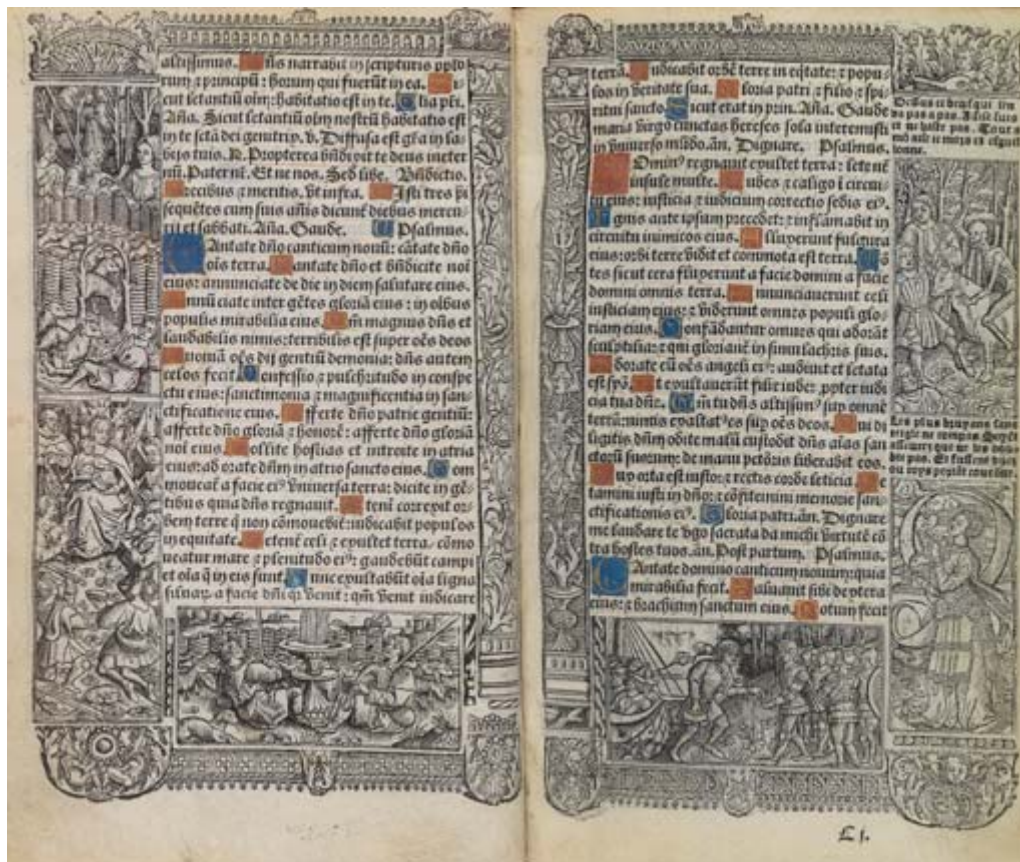 altissimus. Dñs narrabit in scripturis pplo
rum ⁊ principū: horum qui fuerūt in ea. Si
cut letantiū oīm: habitatio est in te. Glia pr̄i.
Aña. Sicut letantiū oīm nostrū habitatio est
in te sctā dei genitrix. v. Diffusa est grā in la
bijs tuis. R. Propterea bñdixit te deus in eter
nū. Pater nr̄. Et ne nos. Sed libe. Bñdictio.
Precibus ⁊ meritis. vt infra. Isti tres ps̄
sequētes cum suis añis dicunt̄ diebus mercu-
rij et sabbati. Aña. Gaude. Psalmus.
Cantate dño canticum nouū: cātate dño
ois terra. Cantate dño et bñdicite noī
eius: annunciate de die in diem salutare eius.
Annūciate inter gētes gloriā eius: in oībus
populis mirabilia eius. Qm̄ magnus dñs et
laudabilis nimis: terribilis est super oēs deos
Quoniā oēs dij gentiū demonia: dñs autem
celos fecit. Confessio ⁊ pulchritudo in conspe
ctu eius: sanctimonia ⁊ magnificentia in san-
ctificatione eius. Afferte dño patrie gentiū:
afferte dño gloriā ⁊ honorē: afferte dño gloriā
noī eius. Tollite hostias et introite in atria
eius: adorate dñm in atrio sancto eius. Com
moueat̄ a facie eiꝰ vniuersa terra: dicite in gē-
tibus quia dñs regnauit. Etenī correxit or-
bem terre q̄ non cōmouebit̄: iudicabit populos
in equitate. Letent̄ celi ⁊ exultet terra, cōmo
ueatur mare ⁊ plenitudo eiꝰ: gaudebūt campi
et oīa q̄ in eis sunt. Tunc exultabūt oīa ligna
siluaꝝ a facie dñi q̄ꝛ venit: qm̄ venit iudicare
terrā. Iudicabit orbē terre in eq̄tate: ⁊ popu-
los in veritate sua. Gloria patri ⁊ filio ⁊ spi-
ritui sancto. Sicut erat in prin. Aña. Gaude
maria virgo cunctas hereses sola interemisti
in vniuerso mūdo. añ. Dignare. Psalmus.
Dominꝰ regnauit exultet terra: letent̄
insule multe. Nubes ⁊ caligo ī circui
tu eius: iusticia ⁊ iudicium correctio sedis eiꝰ.
Ignis ante ipsum precedet: ⁊ inflāmabit in
circuitu inimicos eius. Illuxerunt fulgura
eius: orbi terre vidit et commota est terra. Mō
tes sicut cera fluxerunt a facie domini a facie
domini omnis terra. Annunciauerunt celi
iusticiam eius: ⁊ viderunt omnes populi glo-
riam eius. Confūdantur omnes qui adorāt
sculptilia: ⁊ qui gloriant̄ in simulachris suis.
Adorate eū oēs angeli eiꝰ: audiuit et letata
est syō. Et exultauerūt filie iude: ꝓpter iudi
cia tua dñe. Qm̄ tu dñs altissimꝰ sup omnē
terrā: nimis exaltatꝰ es sup oēs deos. Qui di
ligitis dñm odite malū custodit dñs aīas san
ctoꝝ suorum: de manu petōris liberabit eos.
Lux orta est iusto: ⁊ rectis corde leticia. Le
tamini iusti in dño: ⁊ cōfitemini memorie san-
ctificationis eiꝰ. Gloria patri. añ. Dignare
me laudare te v̄go sacrata da michi virtutē cō
tra hostes tuos. añ. Post partum. Psalmus.
Cantate domino canticum nouum: quia
mirabilia fecit. Saluauit sibi dextera
eius: ⁊ brachium sanctum eius. Notum fecit
va pas a pas
et ne haste pas
Les plus
L i.